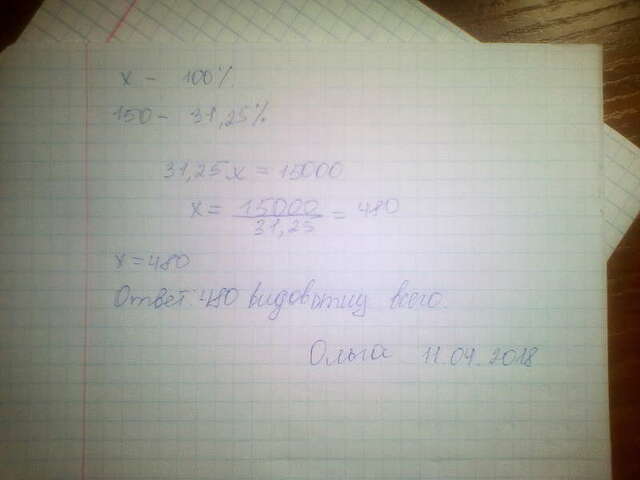 x - 100%
150 - 31,25%
31,25x = 15000
x = 15000/31,25 = 480
x = 480
Ответ: 480 видов птиц всего.
Ольга 11.04.2018